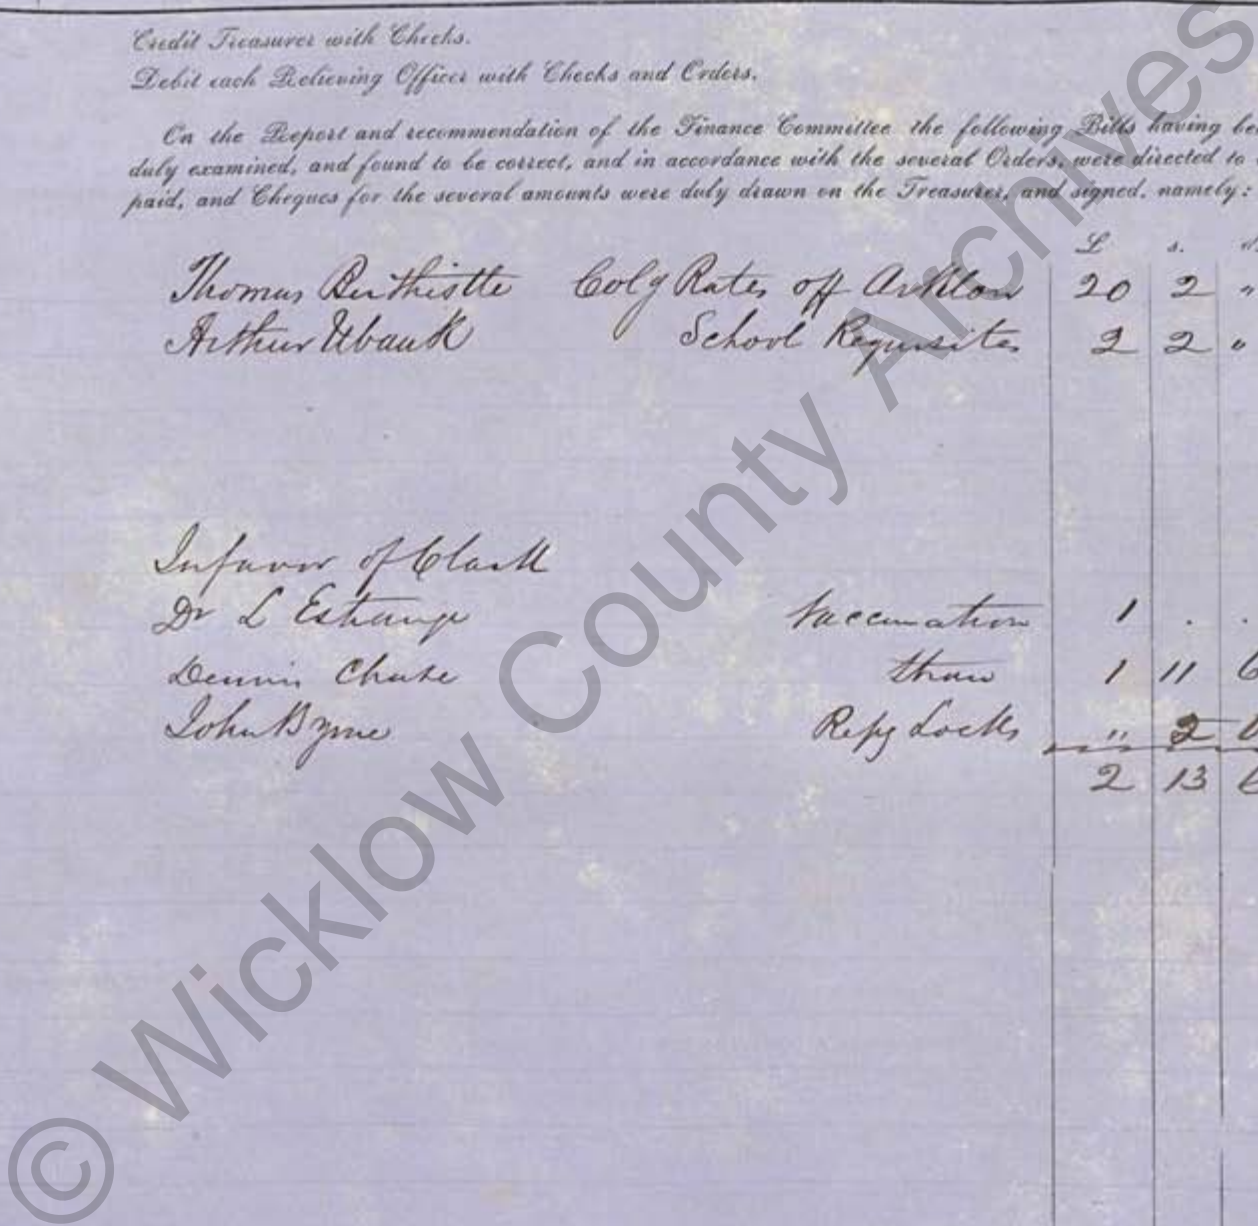 Credit Treasurer with Checks.
Debit each Relieving Officer with Checks and Orders.
On the Report and recommendation of the Finance Committee the following Bills having be
duly examined, and found to be correct, and in accordance with the several Orders, were directed to
paid, and Cheques for the several amounts were duly drawn on the Treasurer, and signed, namely:
£ s. d
Thomas Birthistle Colg Rates off Arklow 20 2 "
Arthur Ubank School Requisites 2 2 "
Infavor of Clark
Dr L Estrange Vaccination 1 . .
Dennis Straw 1 11 6
John Byrne Repg Locks " 2 6
2 13 6
© Wicklow County Archives